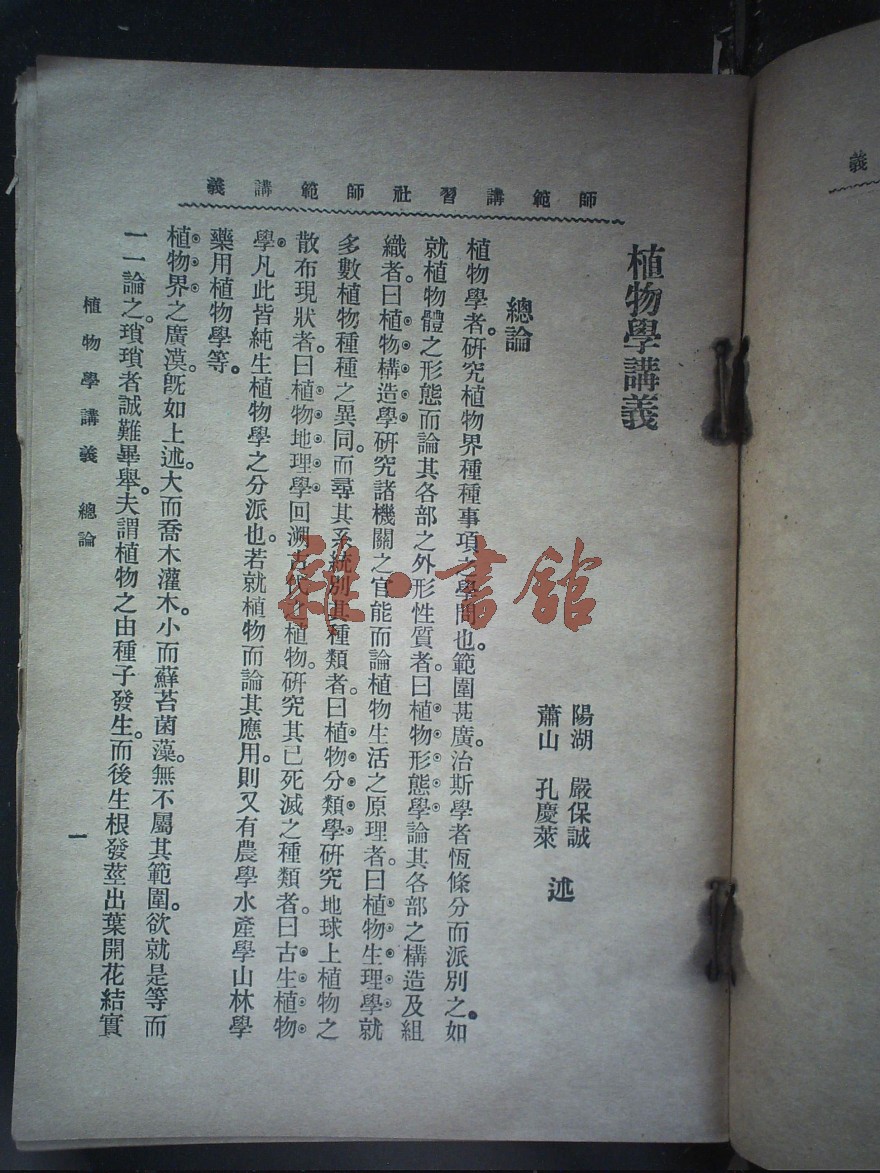 師範講習社師範講義
植物學講義
陽湖 嚴保誠
蕭山 孔慶萊 述
總論
植物學者。研究植物界種種事項之學問也。範圍甚廣。治斯學者恆條分而派別之。如
就植物體之形態而論其各部之外形性質者。曰植物形態學。論其各部之構造及組
織者。曰植物構造學。研究諸機關之官能而論植物生活之原理者。曰植物生理學。就
多數植物種種之異同。而尋其系統別其種類者。曰植物分類學。研究地球上植物之
散布現狀者。曰植物地理學。回溯古代之植物。研究其已死滅之種類者。曰古生植物
學。凡此皆純生植物學之分派也。若就植物而論其應用。則又有農學水產學山林學
藥用植物學等。
植物界之廣漠。旣如上述。大而喬木灌木。小而蘚苔菌藻。無不屬其範圍。欲就是等而
一一論之。瑣瑣者誠難畢舉。夫謂植物之由種子發生。而後生根發莖出葉開花結實
植物學講義 總論
一
義
雜·書館